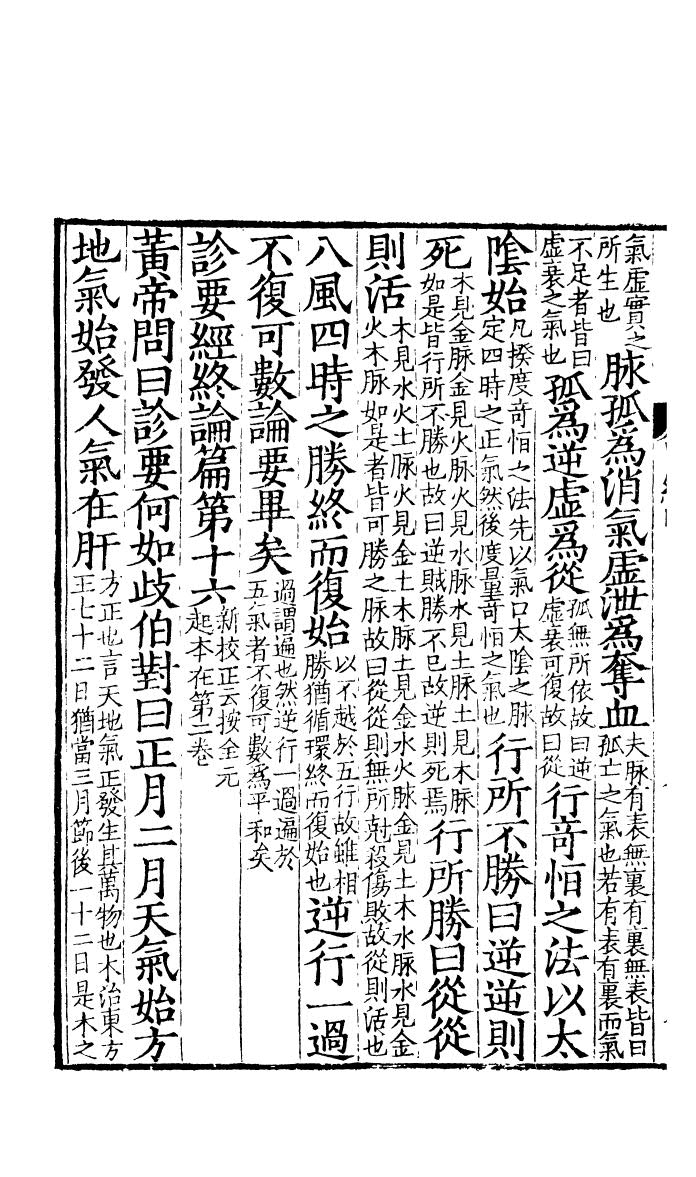 氣虛實之所生也脉孤爲消氣虛泄爲奪血夫脉有表無裏有裏無表皆曰孤亡之氣也若有表有裏而氣
不足者皆曰虛衰之氣也孤爲逆虛爲從孤無所依故曰逆虛衰可復故曰從行竒恒之法以太
陰始凡揆度竒恒之法先以氣口太陰之脉定四時之正氣然後度量竒恒之氣也行所不勝曰逆逆則
死木見金脉金見火脉火見水脉水見土脉土見木脉如是皆行所不勝也故曰逆賊勝不已故逆則死焉行所勝曰從從
則活木見水火土脉火見金土木脉土見金水火脉金見土木水脉水見金火木脉如是者皆可勝之脉故曰從從則無所尅殺傷敗故從則活也
八風四時之勝終而復始以不越於五行故雖相勝猶循環終而復始也逆行一過
不復可數論要畢矣過謂遍也然逆行一過遍於五氣者不復可數爲平和矣
診要經終論篇第十六新校正云按全元起本在第二卷
黃帝問曰診要何如歧伯對曰正月二月天氣始方
地氣始發人氣在肝方正也言天地氣正發生其萬物也木治東方王七十二日猶當三月節後一十二日是木之